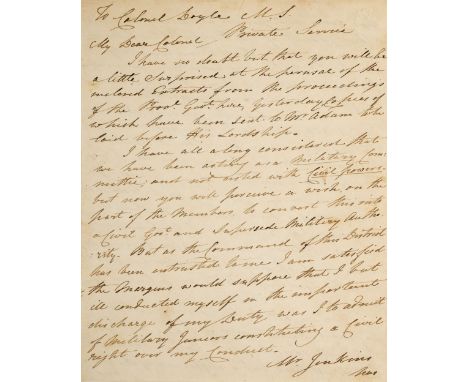 To Colonel Doyle M. S.
My Dear Colonel Private Service
I have no doubt but that you will be
a little Surprised at the perusal of the
inclosed Extracts from the proceedings
of the Provl. Govt. here, yesterday Copies of
which have been sent to Mr. Adam to be
laid before His Lordship.
I have all along considered that
we have been acting as a Military Com
mittee, and not vested with Civil powers
but now you will perceive a wish on the
part of the Members, to convert this into
a Civil Govt. and Supersede Military Autho
rity. But as the Command of this District
has been entrusted to me I am satisfied
the Marquis would suppose that I but
ill conducted myself in the important
discharge of my Duty, was I to admit
of Military Juniors constituting a Civil
right over my Conduct.
Mr. Jenkins